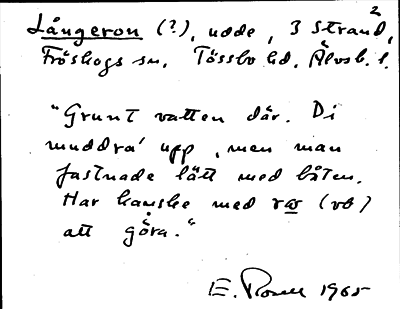 Långeron (?), udde, 3 Strand,²
Fröskogs sn. Tössbo hd. Älvsb. l.
"Grunt vatten där. Di
muddra' upp, men man
fastnade lätt med båten.
Har kanske med ras (vb)
att göra."
E. 1965